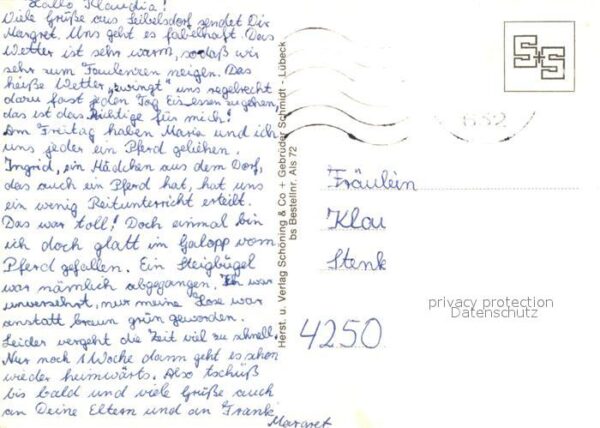 Hallo, Klaudia!
Viele Grüße aus Leibelsdorf sendet Dir
Margret. Uns geht es fabelhaft. Das
Wetter ist sehr warm, sodaß wir
sehr zum Faulenzen neigen. Das
heiße Wetter „zwingt" uns regelrecht
dazu fast jeden Tag Eis essen zu gehen,
das ist das Richtige für mich!
Am Freitag haben Maria und ich
uns jeder ein Pferd geliehen.
Ingrid, ein Mädchen aus dem Dorf,
das auch ein Pferd hat, hat uns
ein wenig Reitunterricht erteilt.
Das war toll! Doch einmal bin
ich doch glatt im Galopp vom
Pferd gefallen. Ein Steigbügel
war nämlich abgegangen. Ich war
unversehrt, nur meine Hose war
anstatt braun grün geworden.
Leider vergeht die Zeit viel zu schnell.
Nur noch 1 Woche dann geht es schon
wieder heimwärts. Also tschüß
bis bald und viele Grüße auch
an Deine Eltern und an Frank
Margret
Herst. u. Verlag Schöning & Co + Gebrüder Schmidt - Lübeck
bs Bestellnr. Als 72
S+S
Fräulein
Klau
Stenk
4250
privacy protection
Datenschutz